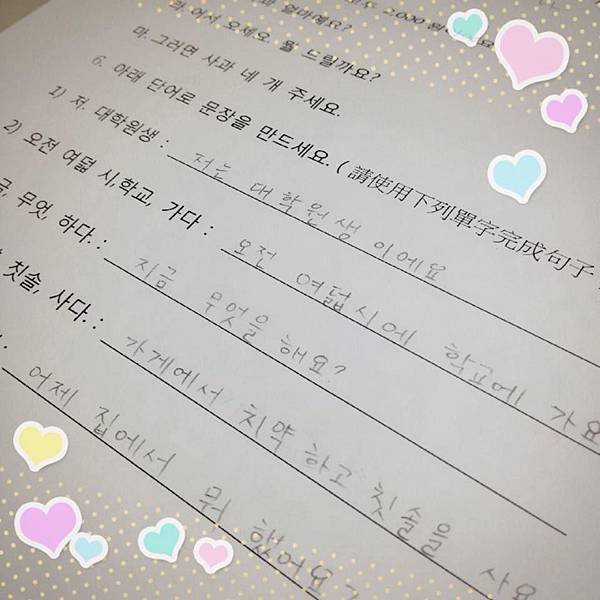 2,000
얼마예요?
라. 어서 오세요. 뭘 드릴까요?
마. 그러면 사과 네 개 주세요.
6. 아래 단어로 문장을 만드세요. ( 請使用下列單字完成句子
1) 저. 대학원생 : 저는 대학원생 이에요
2) 오전 여덟 시, 학교, 가다 : 오전 여덟시에 학교에 가요
무엇, 하다. : 지금 무엇을 해요?
칫솔, 사다. : 가게에서 치약 하고 칫솔을 사요
어제 집에서 뭐 했어요?